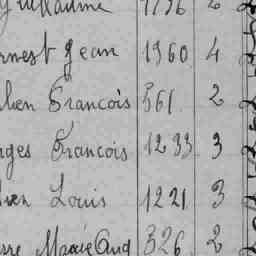 Guillaume 1736 2
rnest Jean 1360 4
lien Francois 561 2
rges Francois 1233 3
ien Louis 1221 3
rre Marie Aug 326 2